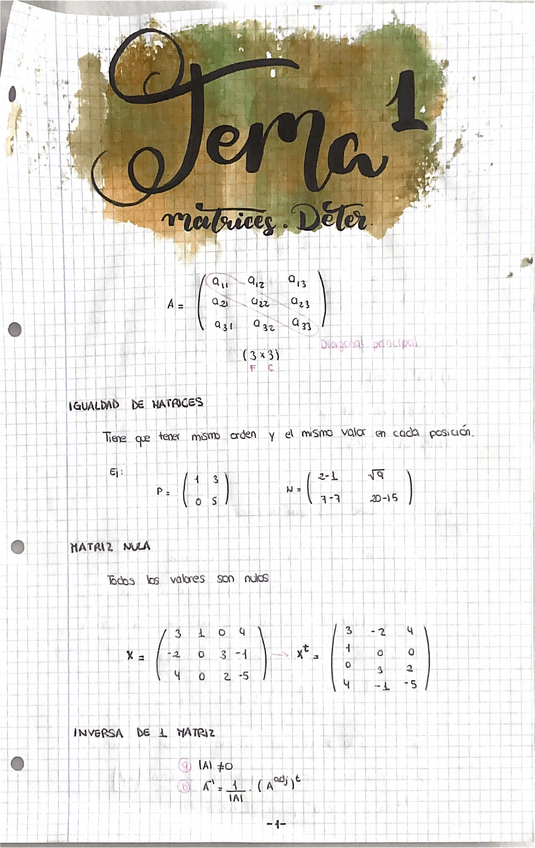 Tema 1
matrices. Deter.
A = ( a11 a12 a13
a21 a22 a23
a31 a32 a33 )
Diagonal principal
(3x3)
F C
IGUALDAD DE MATRICES
Tiene que tener mismo orden y el mismo valor en cada posición.
Ej:
P = ( 1 3
0 5 )
N = ( 2-1 √9
7-7 20-15 )
MATRIZ NULA
Todos los valores son nulos
X = ( 3 1 0 4
-2 0 3 -1
4 0 2 -5 )
→ X^t = ( 3 -2 4
1 0 0
0 3 2
4 -1 -5 )
INVERSA DE 1 MATRIZ
a) |A| ≠ 0
b) A^-1 = 1/|A| · (A^adj)^t
-1-